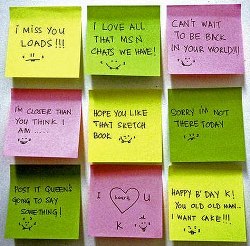 I MISS YOU
LOADS!!!
I LOVE ALL
THAT MSN
CHATS WE HAVE!
CAN'T WAIT
TO BE BACK
IN YOUR WORLD!!!
I'M CLOSER THAN
YOU THINK I
AM ....
HOPE YOU LIKE
THAT SKETCH
BOOK
SORRY I'M NOT
THERE TODAY
POST IT QUEEN'S
GOING TO SAY
SOMETHING!
I heart U
K
HAPPY B'DAY K!
YOU OLD OLD MAN...
I WANT CAKE!!!